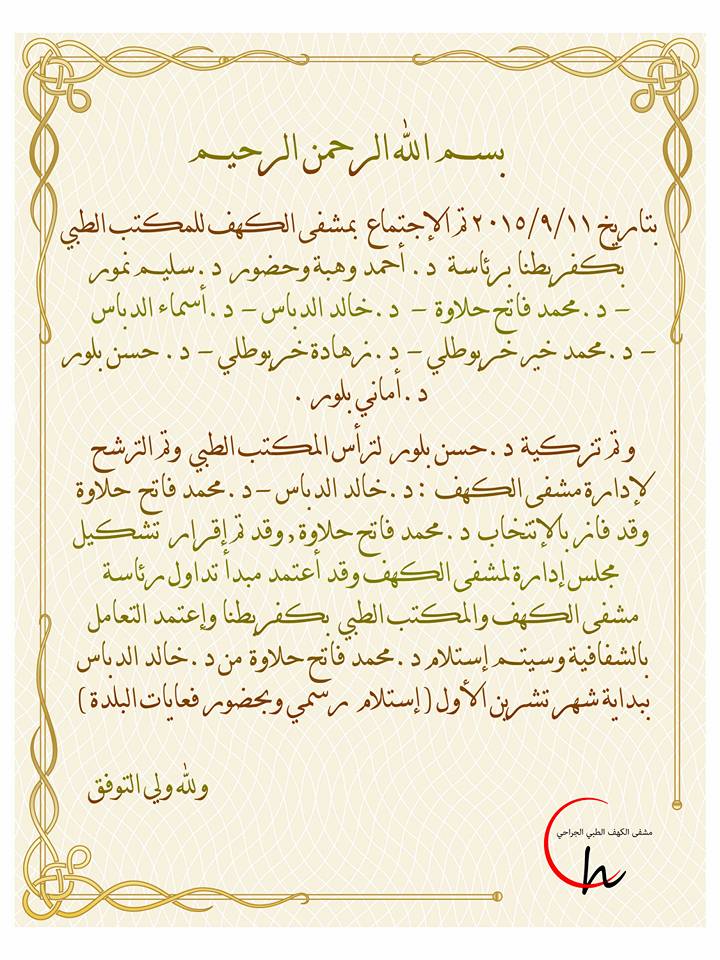 بسم الله الرحمن الرحيم
بتاريخ ٢٠١٥/٩/١١ تم الإجتماع بمشفى الكهف للمكتب الطبي
بكفربطنا برئاسة د . أحمد وهبة وحضور د . سليم نمور
– د . محمد فاتح حلاوة – د . خالد الدباس – د . أسماء الدباس
– د . محمد خير خربوطلي – د . زهادة خربوطلي – د . حسن بلور
د . أماني بلور .
و تم تزكية د . حسن بلور لترأس المكتب الطبي وتم الترشح
لإدارة مشفى الكهف : د . خالد الدباس – د . محمد فاتح حلاوة
وقد فاز بالإنتخاب د . محمد فاتح حلاوة , وقد تم إقرار تشكيل
مجلس إدارة لمشفى الكهف وقد أعتمد مبدأ تداول رئاسة
مشفى الكهف والمكتب الطبي بكفربطنا وإعتمد التعامل
بالشفافية وسيتم إستلام د . محمد فاتح حلاوة من د . خالد الدباس
ببداية شهر تشرين الأول ( إستلام رسمي وبحضور فعايات البلدة )
ولله ولي التوفق
مشفى الكهف الطبي الجراحي
Ch